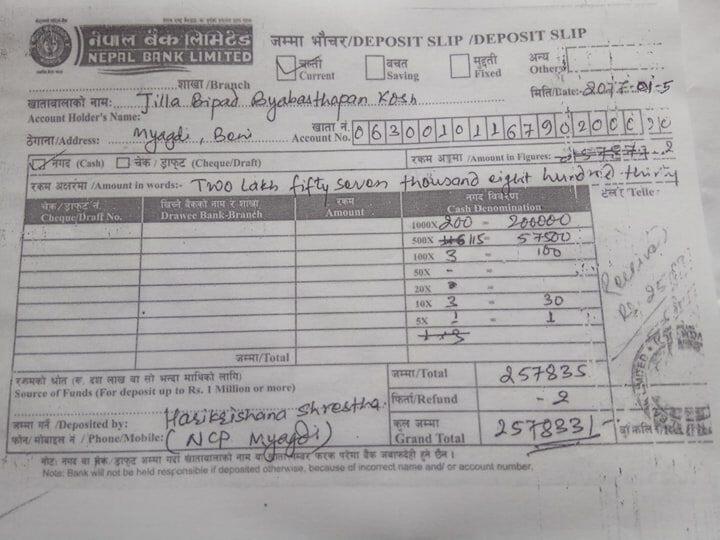 नेपाल बैंक लिमिटेड
NEPAL BANK LIMITED
जम्मा भौचर/DEPOSIT SLIP /DEPOSIT SLIP
चल्ती Current
बचत Saving
मुद्दती Fixed
अन्य Other
शाखा/Branch
मिति/Date:-
खातावालाको नाम: Jilla Bipad Byabasthapan Kosh
Account Holder's Name:
ठेगाना/Address: Myagdi, Beni
खाता नं. Account No.
नगद (Cash) चेक / ड्राफ्ट (Cheque/Draft)
रकम अङ्कमा /Amount in Figures:
रकम अक्षरमा /Amount in words:- Two Lakh fifty seven thousand eight hundred thirty
टेलर/ Teller
चेक/ड्राफ्ट नं. खिच्ने बैंकको नाम र शाखा रकम नगद विवरण
Cheque/Draft No. Drawee Bank-Branch Amount Cash Denomination
1000X 200 = 200000
500X 115 = 57500
100X 3 =
50X -
20X
10X 3 = 30
5X 1 = 1
Received
जम्मा/Total
रकमको श्रोत (रु. दश लाख वा सो भन्दा माथिको लागि)
Source of Funds (For deposit up to Rs. 1 Million or more)
जम्मा/Total 257835
फिर्ता/Refund - 2
जम्मा गर्ने /Deposited by: Harikrishana Shrestha
फोन/ मोबाइल नं / Phone/Mobile: (NCP Myagdi)
कूल जम्मा
Grand Total 257833/-
नोट: नगद वा चेक/ ड्राफ्ट जम्मा गर्दा खातावालाको नाम वा खाता नम्बर फरक परेमा बैंक जवाफदेही हुने छैन ।
Note: Bank will not be held responsible if deposited otherwise, because of incorrect name and/ or account number.